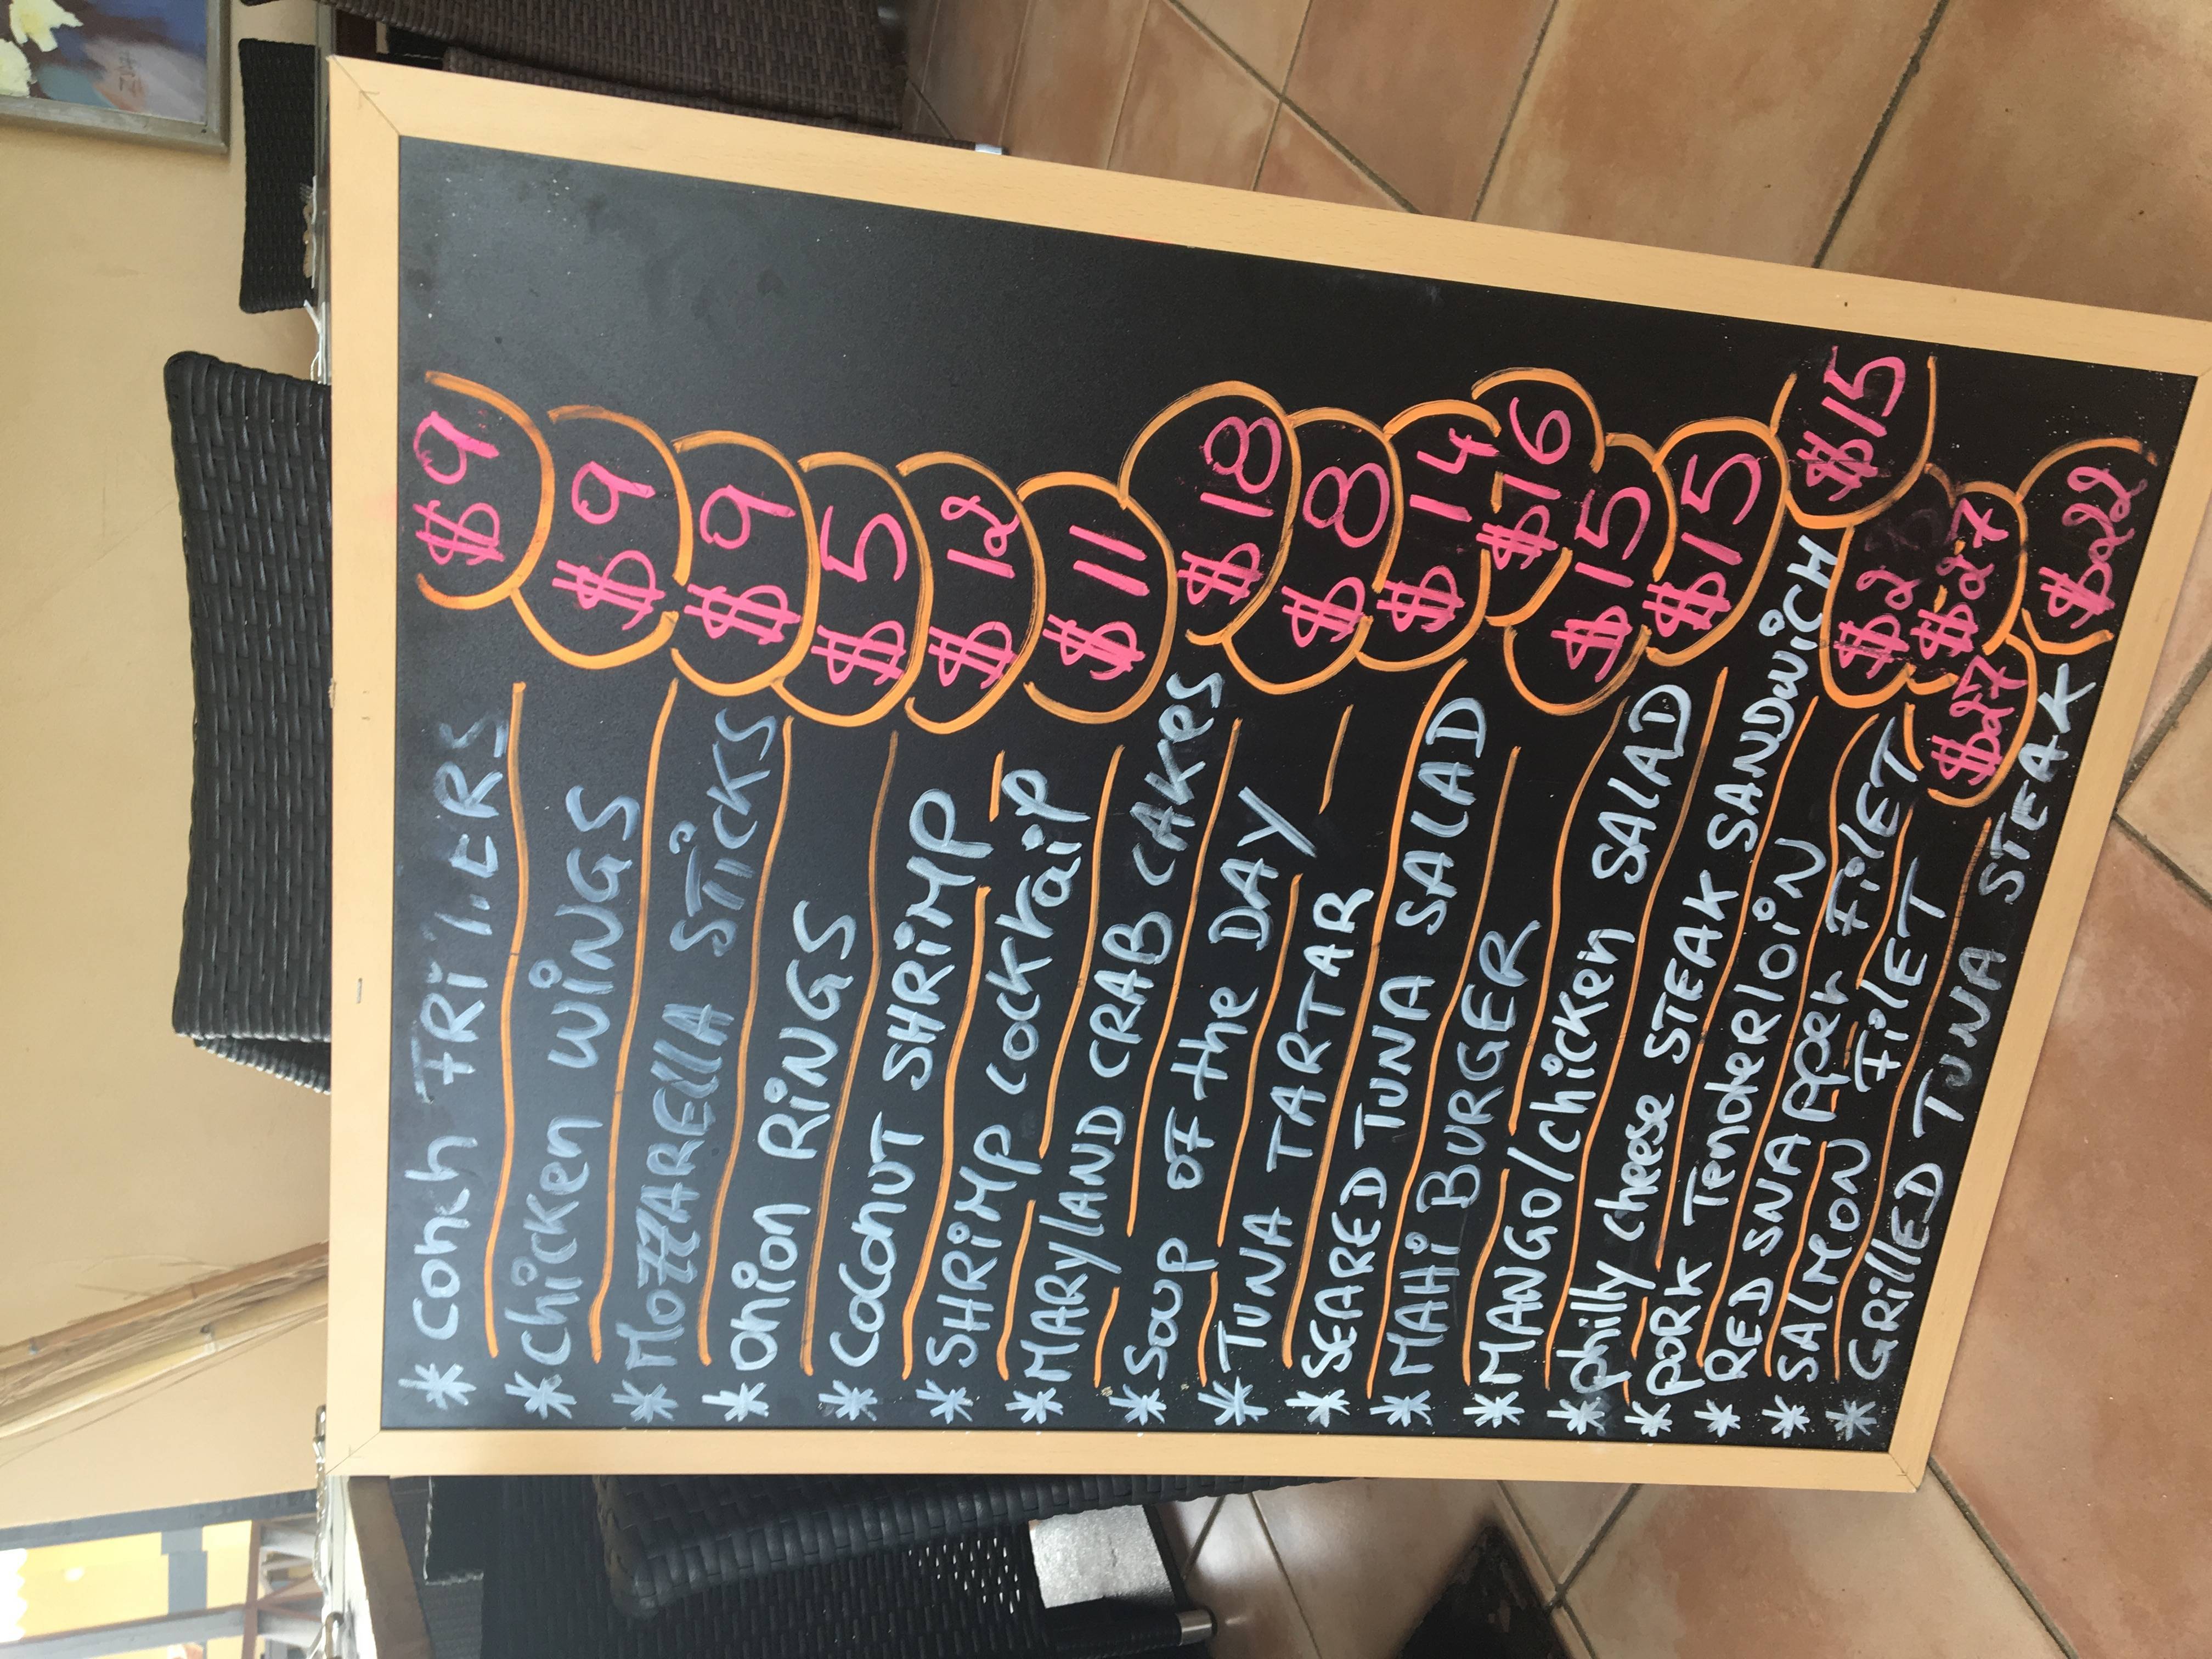 * conch FRiTTERS $9
* chicken wiNGS $9
* MOZZAREllA STiCKS $9
* onion RiNGS $5
* coconuT SHRiMP $12
* SHRiMp cockTail $11
* MARylAND CRAB CAKes $18
* Soup oF the DAY $8
* TUNA TARTAR $14
* SEARED TUNA SALAD $16
* MAHi BURGER $15
* MANGO/chicken SALAD $15
* philly cheese STEAK SANDwiCH $15
* poRK TendeRloiN $23
* RED SNAppeR FilET $27
* SALMON FilET $27
* GRillED TUNA STEAK $22